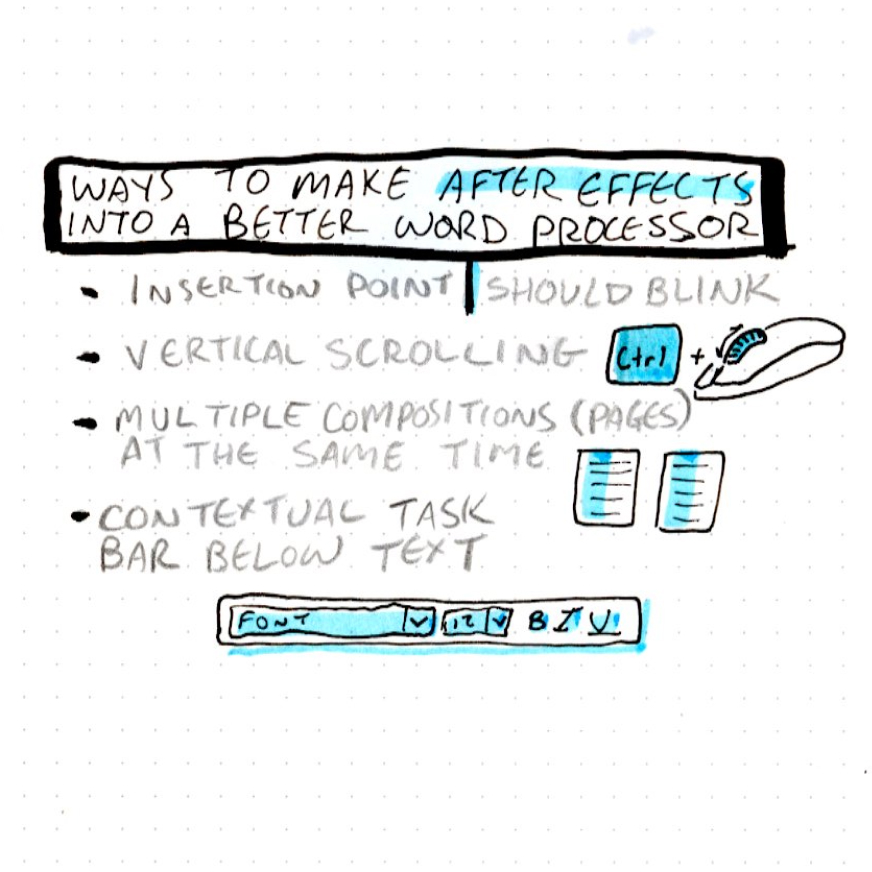 WAYS TO MAKE AFTER EFFECTS
INTO A BETTER WORD PROCESSOR
- INSERTION POINT | SHOULD BLINK
- VERTICAL SCROLLING Ctrl +
- MULTIPLE COMPOSITIONS (PAGES)
AT THE SAME TIME
- CONTEXTUAL TASK
BAR BELOW TEXT
FONT 12 B I U